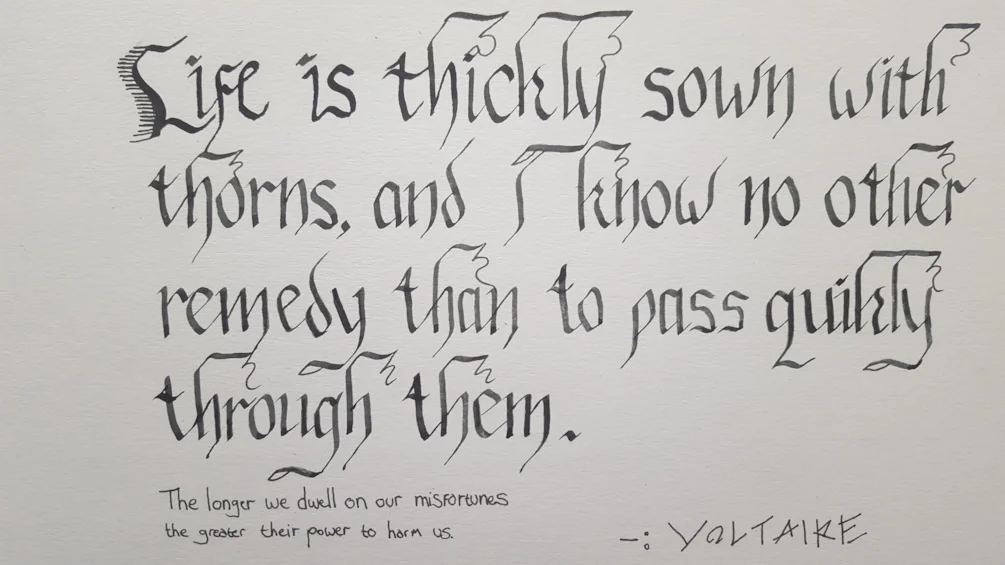 Life is thickly sown with
thorns, and I know no other
remedy than to pass quikly
through them.
The longer we dwell on our misfortunes
the greater their power to harm us.
-: VOLTAIRE